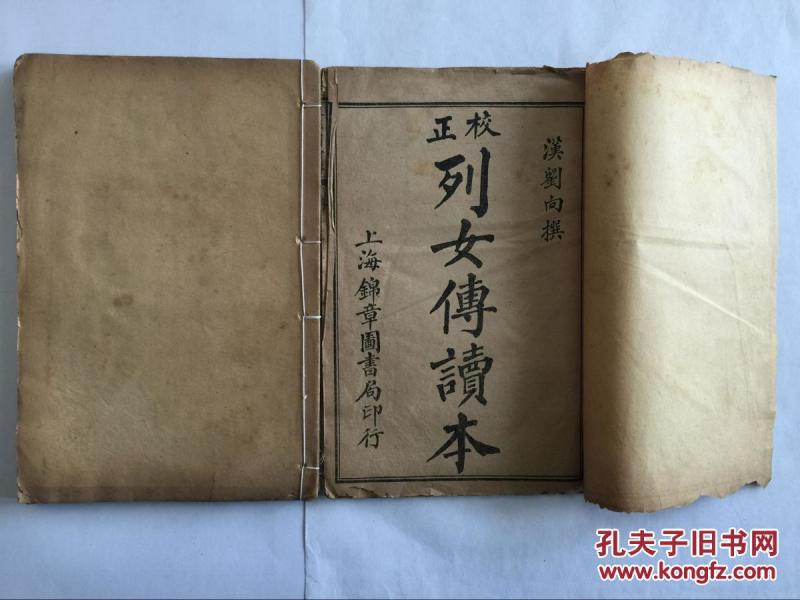 漢劉向撰
校正
列女傳讀本
上海錦章圖書局印行
孔夫子旧书网
www.kongfz.com